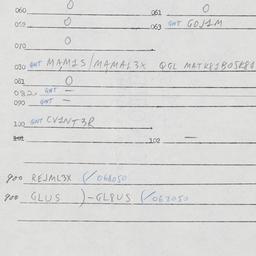 060 0 061 0
059 0 063 GNT GOJ1M
070 0
080 GNT MAM1S / MAMAL3X QGL MATK81BO5K84
081 0
082 GNT —
090 GNT —
100 GNT CV1NT3R
101 102 —
900 REJML3X (/068050
900 GLUS )-GL8US (/067050